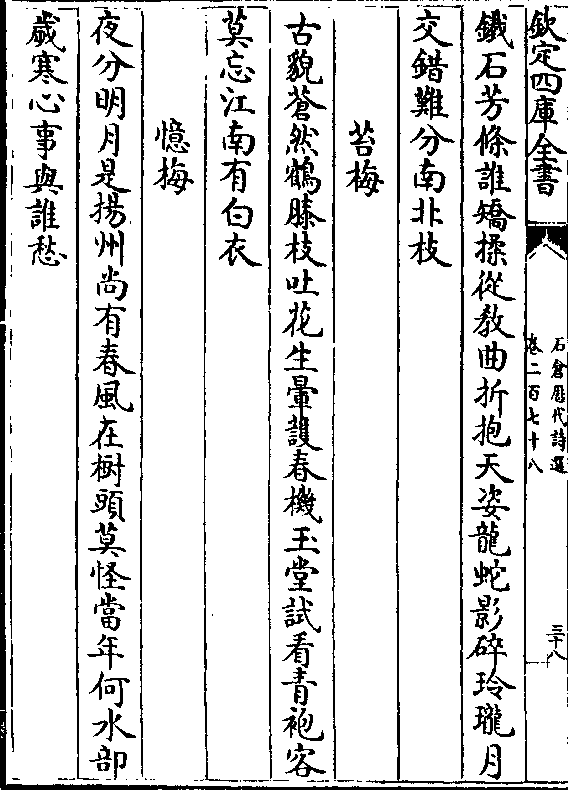 欽定四庫全書
石倉歷代詩選
卷二百七十八
三十八
鐵石芳條誰矯揉從教曲折抱天姿龍蛇影碎玲瓏月
交錯難分南北枝
苔梅
古貌蒼然鶴膝枝吐花生暈護春機玉堂試看青袍客
莫忘江南有白衣
憶梅
夜分明月是揚州尚有春風在樹頭莫怪當年何水部
歲寒心事與誰愁